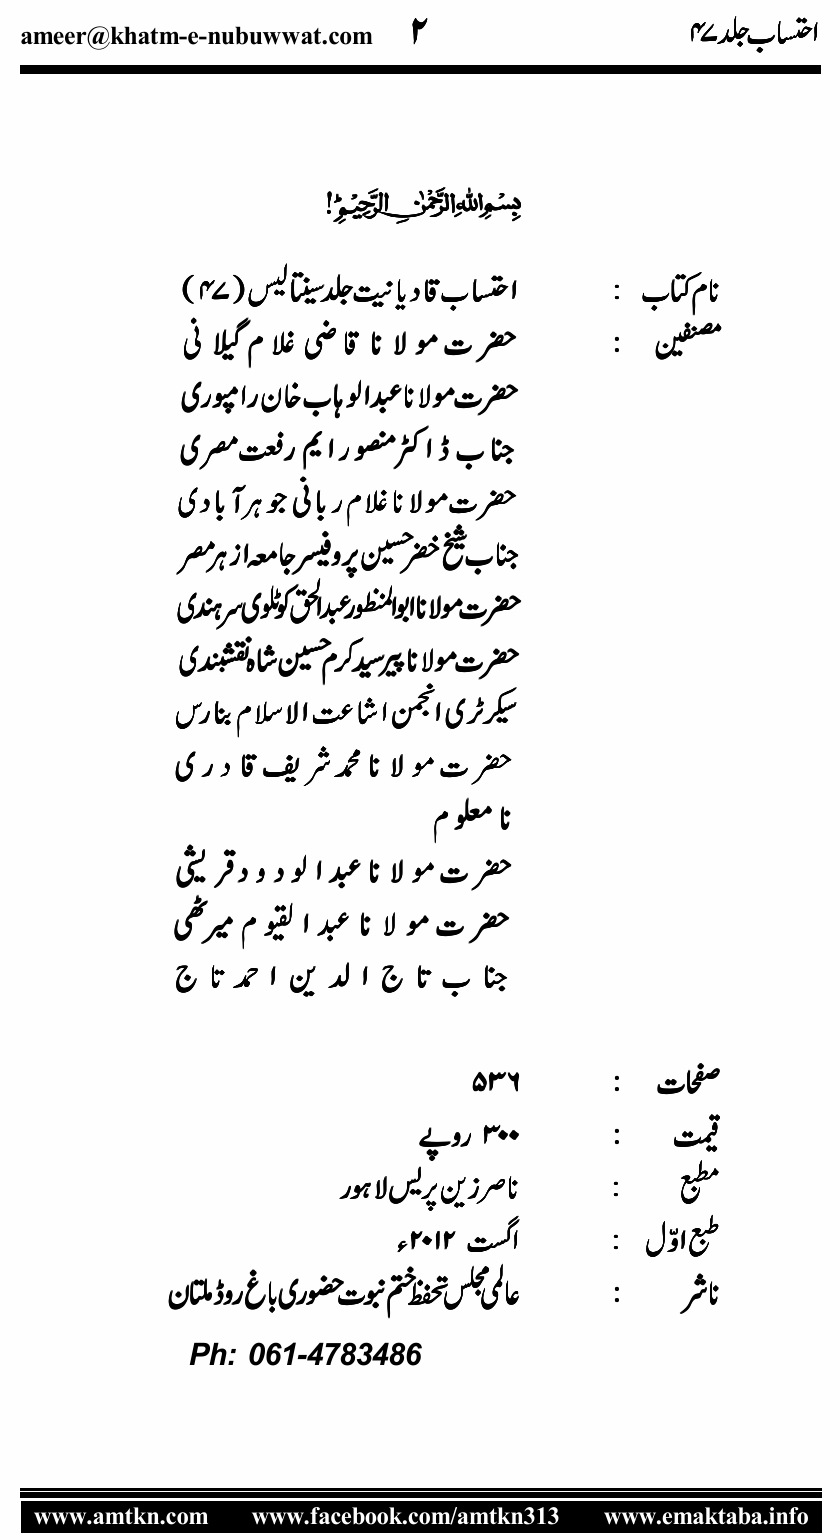 احتساب جلد ۴۷ ۲ ameer@khatm-e-nubuwwat.com
بسم اللہ الرحمن الرحیم!
نام کتاب : احتساب قادیانیت جلد سینتالیس (۴۷)
مصنفین : حضرت مولانا قاضی غلام گیلانی
حضرت مولانا عبدالوہاب خان رامپوری
جناب ڈاکٹر منصور ایم رفعت مصری
حضرت مولانا غلام ربانی جوہرآبادی
جناب شیخ خضر حسین پروفیسر جامعہ ازہر مصر
حضرت مولانا ابوالمنظور عبدالحق کوٹلوی سرہندی
حضرت مولانا پیر سید کرم حسین شاہ نقشبندی
سیکرٹری انجمن اشاعت الاسلام بنارس
حضرت مولانا محمد شریف قادری
نامعلوم
حضرت مولانا عبدالودود قریشی
حضرت مولانا عبدالقیوم میرٹھی
جناب تاج الدین احمد تاج
صفحات : ۵۳۶
قیمت : ۳۰۰ روپے
مطبع : ناصر زین پریس لاہور
طبع اوّل : اگست ۲۰۱۲ء
ناشر : عالمی مجلس تحفظ ختم نبوت حضوری باغ روڈ ملتان
Ph: 061-4783486
www.amtkn.com www.facebook.com/amtkn313 www.emaktaba.info